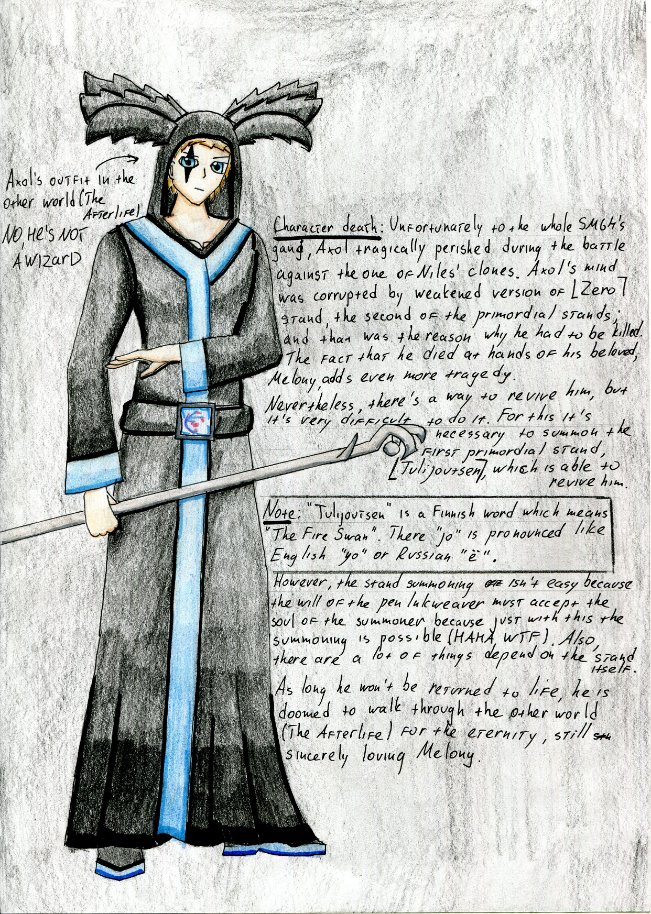 Axol's outfit in the
other world (The
Afterlife)
NO, HE'S NOT
A WIZARD
Character death: Unfortunately to the whole SMG4's
gang, Axol tragically perished during the battle
against the one of Niles' clones. Axol's mind
was corrupted by weakened version of [Zero]
stand, the second of the primordial stands,
and than was the reason why he had to be killed.
The fact that he died at hands of his beloved,
Melony, adds even more tragedy.
Nevertheless, there's a way to revive him, but
it's very difficult to do it. For this it's
necessary to summon the
first primordial stand,
[Tulijoutsen], which is able to
revive him.
Note: "Tulijoutsen" is a Finnish word which means
"The Fire Swan". There "jo" is pronounced like
English "yo" or Russian "ё".
However, the stand summoning isn't easy because
the will of the pen Inkweaver must accept the
soul of the summoner because just with this the
summoning is possible (HAHA, WTF). Also,
there are a lot of things depend on the stand
itself.
As long he won't be returned to life, he is
doomed to walk through the other world
(The Afterlife) for the eternity, still
sincerely loving Melony.